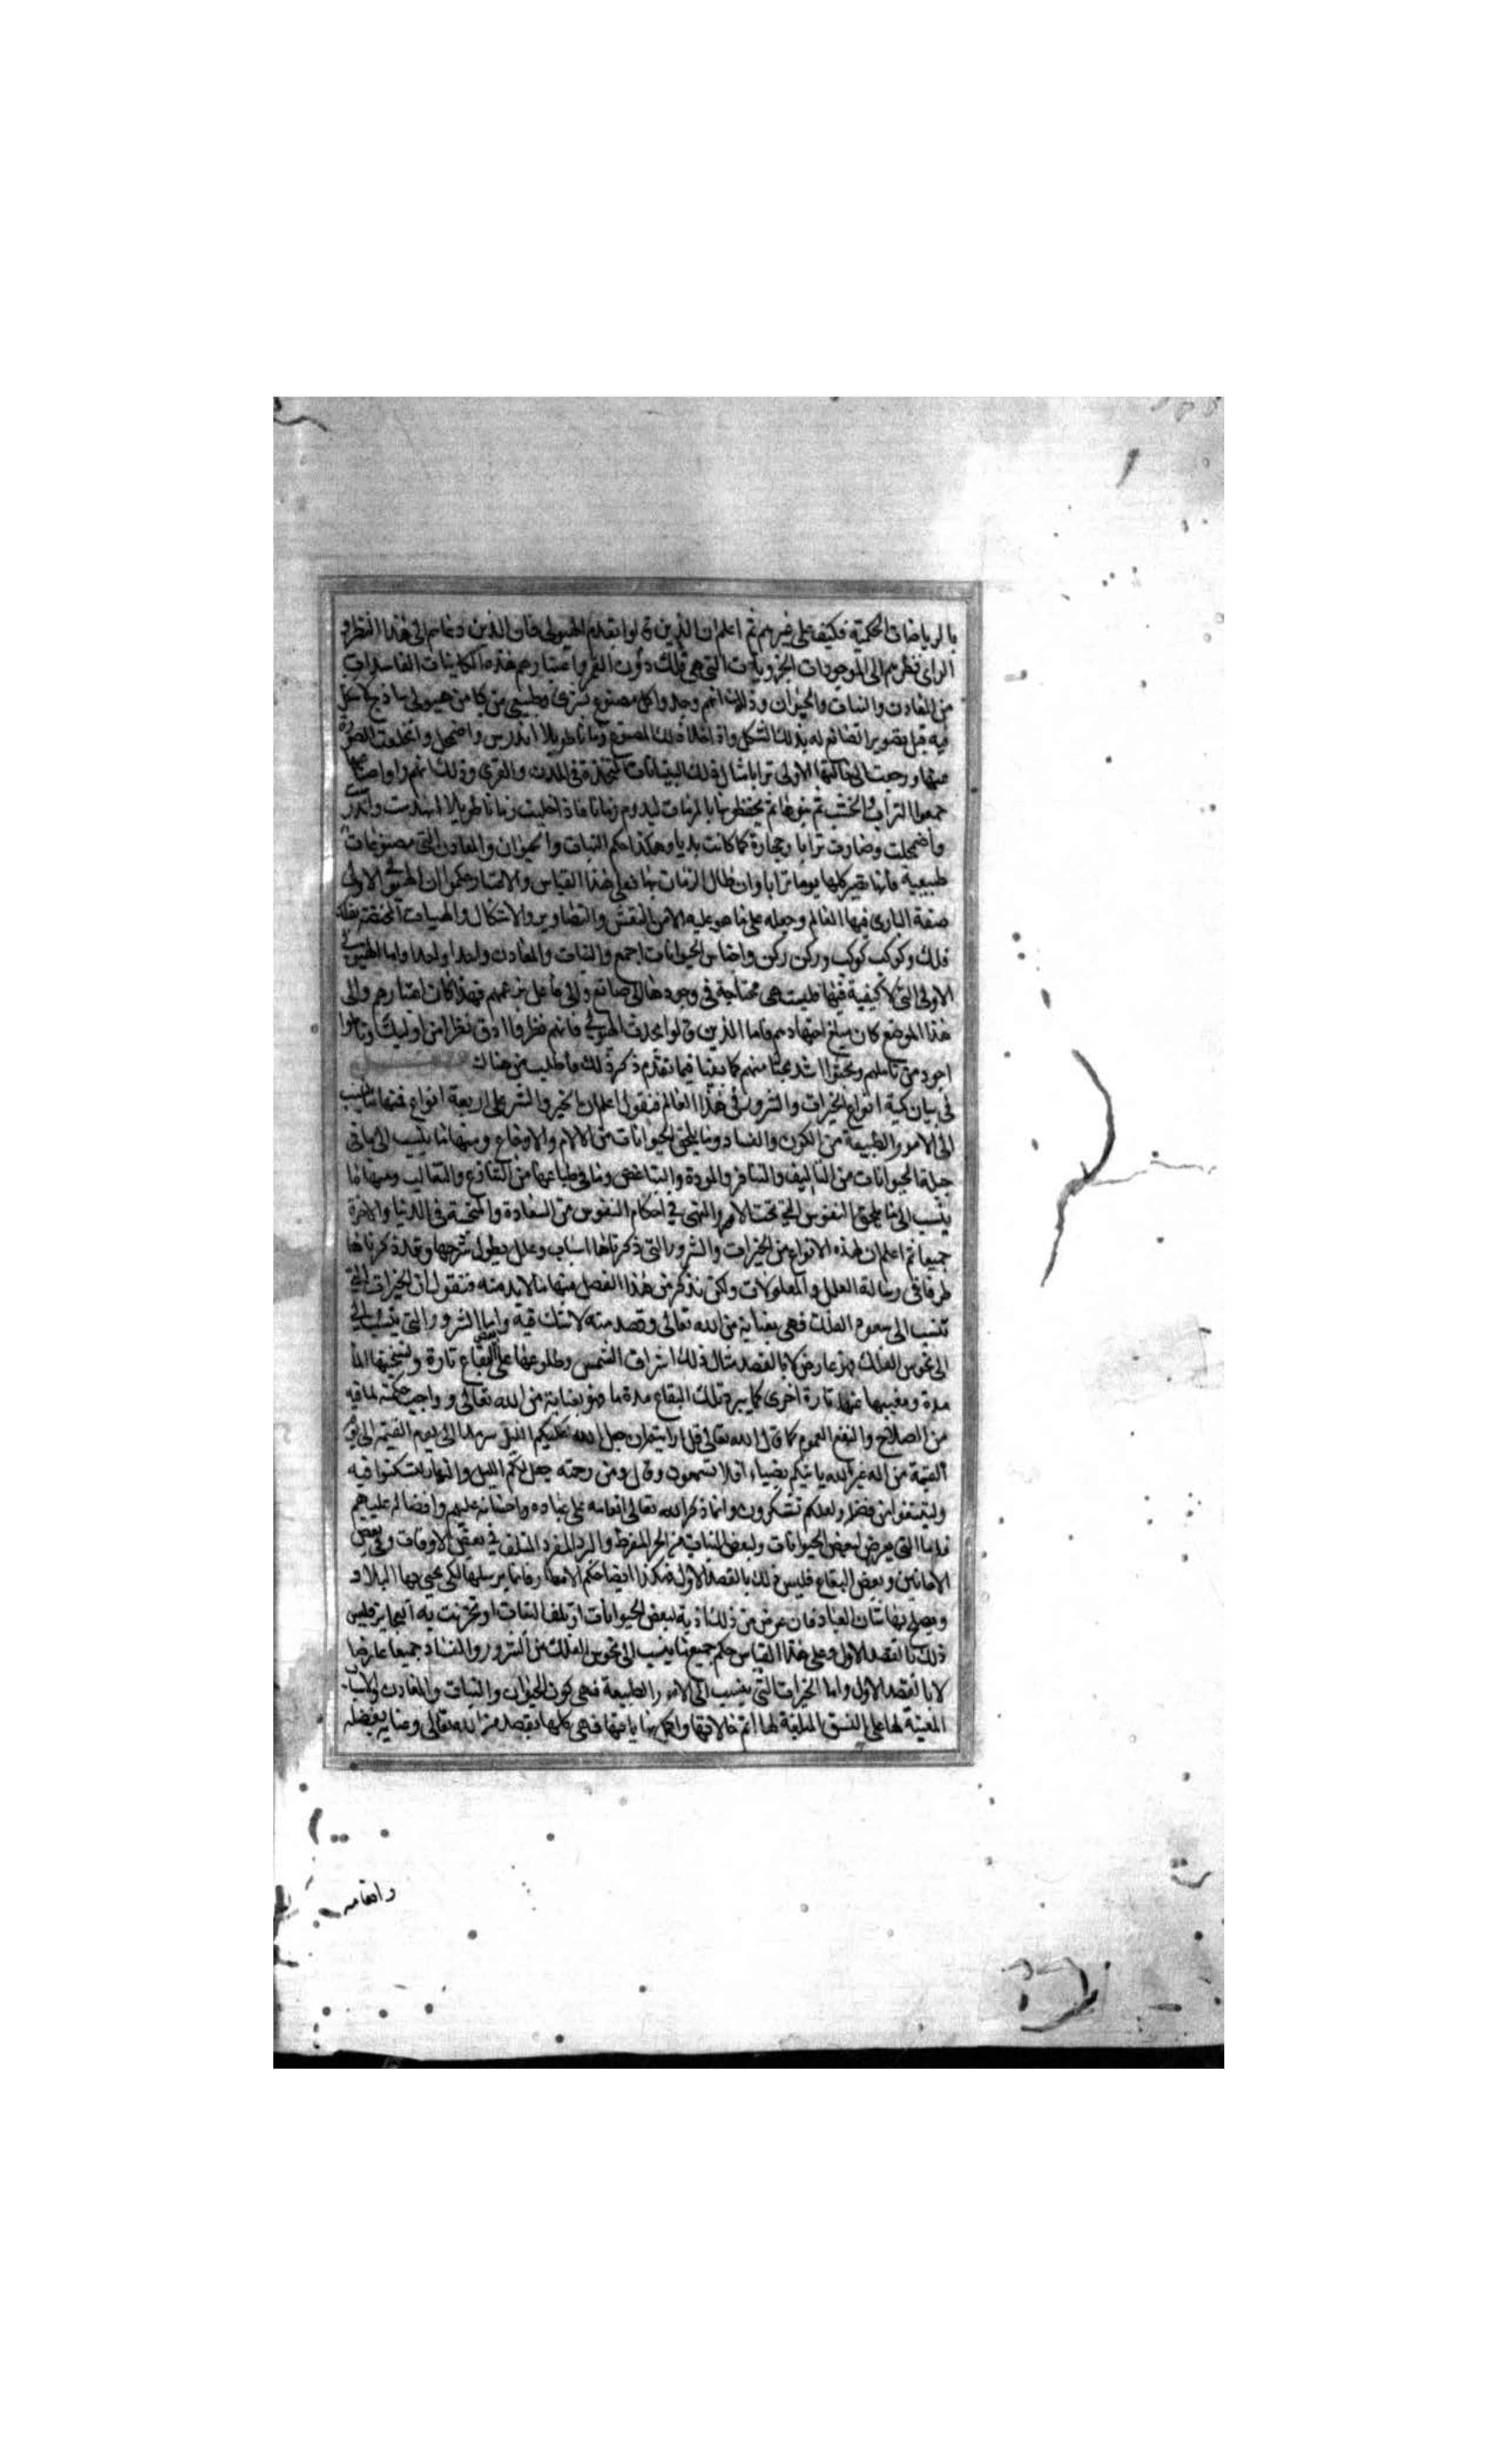 بالرياضات الحكمية فكيف على غيرهم ثم اعلم ان الذين قالوا بقدم الهيولى فان الذى دعاهم الى هذا النظر و
الراى نظرهم الى الموجودات الجزويات التى هى فلك دون القمر واعتبارهم هذه الكاينات الفاسدات
من المعادن والنبات والحيوان وذلك انهم وجدوا كل مصنوع بشرى وطبيعى مركبا من هيولى ساذج
فيه قبل تصوير الصانع له بذلك الشكل واذ اخلا ذلك المصنوع زمانا طويلا اندرس واضمحل وانخلعت الصورة
منها ورجعت الى حالتها الاولى ترابا مثال ذلك البنيانات المتخذة فى المدن والقرى وذلك انهم
جمعوا التراب والخشب ثم بنوها ثم يحفظونها بالمرمات ليدوم زمانا فاذ اخليت زمانا طويلا انهدمت
واضمحلت وصارت ترابا وحجارة كما كانت بديا وهكذا حكم النبات والحيوان والمعادن التى مصنوعات
طبيعية فانها تصير كلها يوما ترابا وان طال الزمان بها فعلى هذا القياس والاعتبار حكموا ان الهيولى الاولى
صنعة البارى فيها العالم وجعله على ما هو عليه الان من النقش والتصاوير والاشكال والهيات المختصة
فلك وكوكب كوكب وركن ركن واجناس الحيوانات اجمع والنبات والمعادن واحدا واحدا واما الهيولى
الاولى التى لا كيفية فيها فليست هى محتاجة فى وجودها الى صانع والى فاعل بزعمهم فهذا كان اعتبارهم والى
هذا الموضع كان مبلغ اجتهادهم فاما الذين قالوا بحدث الهيولى فانهم نظروا ادق نظرا من اوليك وتاملوا
اجود من تاملهم وبحثوا اشد بحثا منهم كما بينا فيما تقدم ذكر ذلك فاطلبه من هناك
فى بيان كمية انواع الخيرات والشرور فى هذا العالم فنقول اعلم ان الخير والشر على اربعة انواع فمنها ما ينسب
الى الامور الطبيعة من الكون والفساد وما يلحق الحيوانات من الالام والاوجاع ومنها ما ينسب الى ما فى
جبلة الحيوانات من التاليف والتنافر والمودة والتباغض وما فى طباعها من التنازع والتغالب ومنها ما
ينسب الى ما يلحق النفوس التى تحت الامر والنهى فى احكام النفوس من السعادة والمنحسة فى الدنيا والاخرة
جميعا ثم اعلم ان لهذه الانواع من الخيرات والشرور التى ذكرناها اسباب وعلل يطول شرحها وقد ذكرناها
طرفا فى رسالة العلل والمعلولات ولكن نذكر من هذا الفصل منها ما لا بد منه فنقول ان الخيرات التى
تنسب الى سعود الفلك فهى بعناية من الله تعالى وقصد منه لا شك فيه واما الشرور التى ينسب
الى نحوس الفلك فهو عارض لا بالقصد مثال ذلك اشراق الشمس وطلوعها على بعض البقاع تارة وتسخينها لها
مدة ومغيبها عنها تارة اخرى كما يبرد تلك البقاع مدة ما هو بعناية من الله تعالى وواجب حكمته لما فيه
من الصلاح والنفع العموم كما قال الله تعالى قل ارايتم ان جعل الله عليكم الليل سرمدا الى يوم القيمة الى يوم
القيمة من اله غير الله ياتيكم بضياء افلا تسمعون وقال ومن رحمته جعل لكم الليل والنهار لتسكنوا فيه
ولتبتغوا من فضله ولعلكم تشكرون وانما ذكر الله تعالى انعامه على عباده واحسانه عليهم وافضاله عليهم
فاما التى يعرض لبعض الحيوانات ولبعض النبات من الحر المفرط والبرد المفرد المتلف فى بعض الاوقات وفى بعض
الاماكن وبعض البقاع فليس ذلك بالقصد الاول فهكذا ايضا حكم الامطار فانما يرسلها لكى يحيى بها البلاد
ويصلح بها شان العباد فان عرض من ذلك اذية لبعض الحيوانات او تلف النبات او تخربت به فليس
ذلك بالقصد الاول وعلى هذا القياس حكم جميع ما ينسب الى نحوس الفلك من الشرور والفساد جميعا عارضا
لا بالقصد الاول واما الخيرات التى ينسب الى الامور الطبيعة فهى كون الحيوان والنبات والمعادن
المعينة لها على النسق المبلغة لها اتم حالاتها واكمل غاياتها فهى كلها بقصد من الله تعالى وعناية بفضله
وانعامه